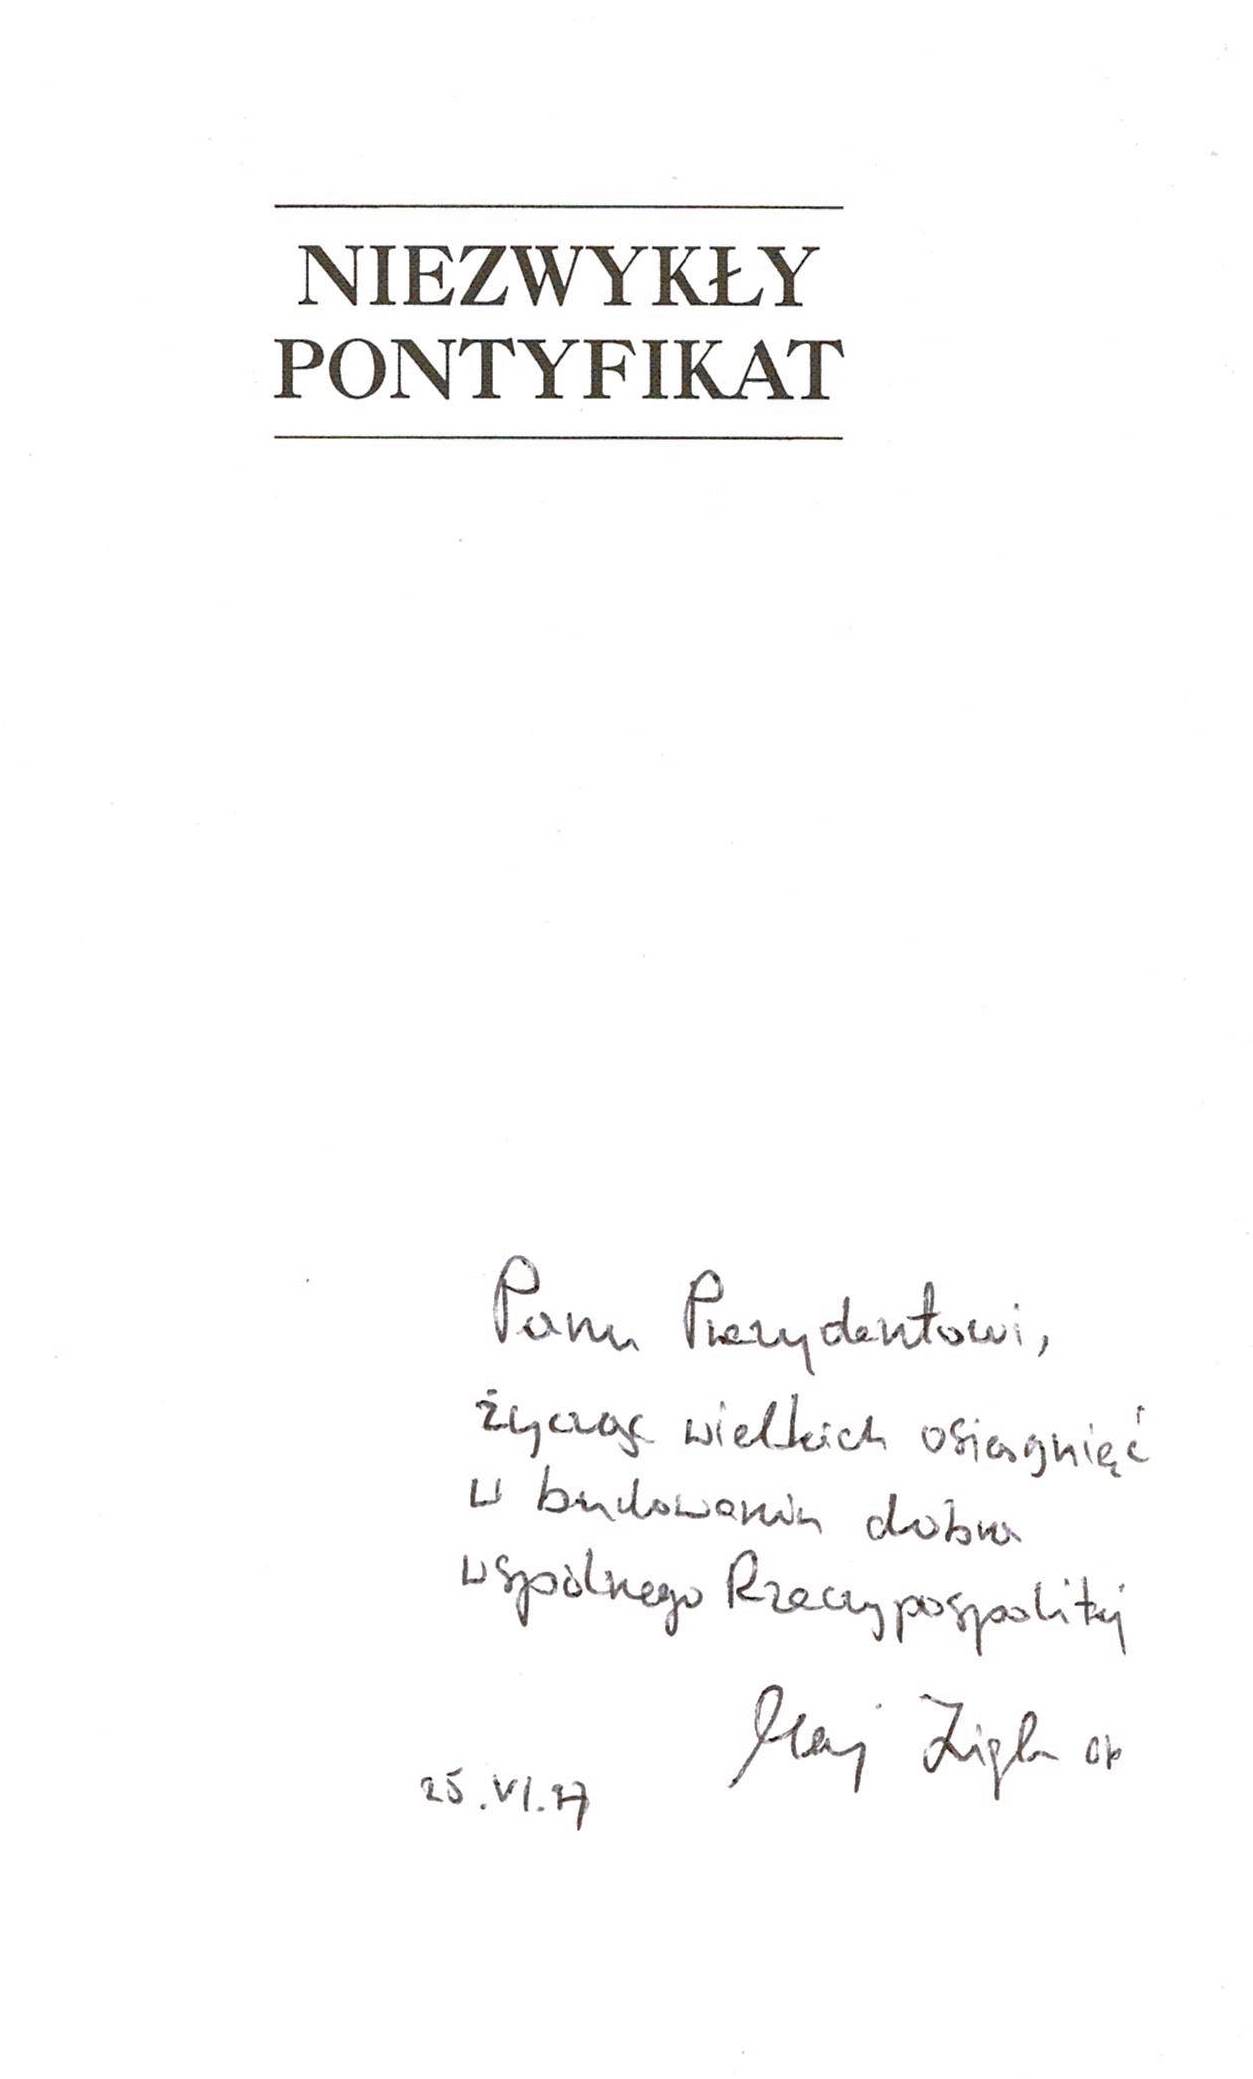 NIEZWYKŁY
PONTYFIKAT
Panu Prezydentowi,
życząc wielkich osiągnięć
w budowaniu dobra
wspólnego Rzeczypospolitej
Maciej Zięba OP
25.VI.97